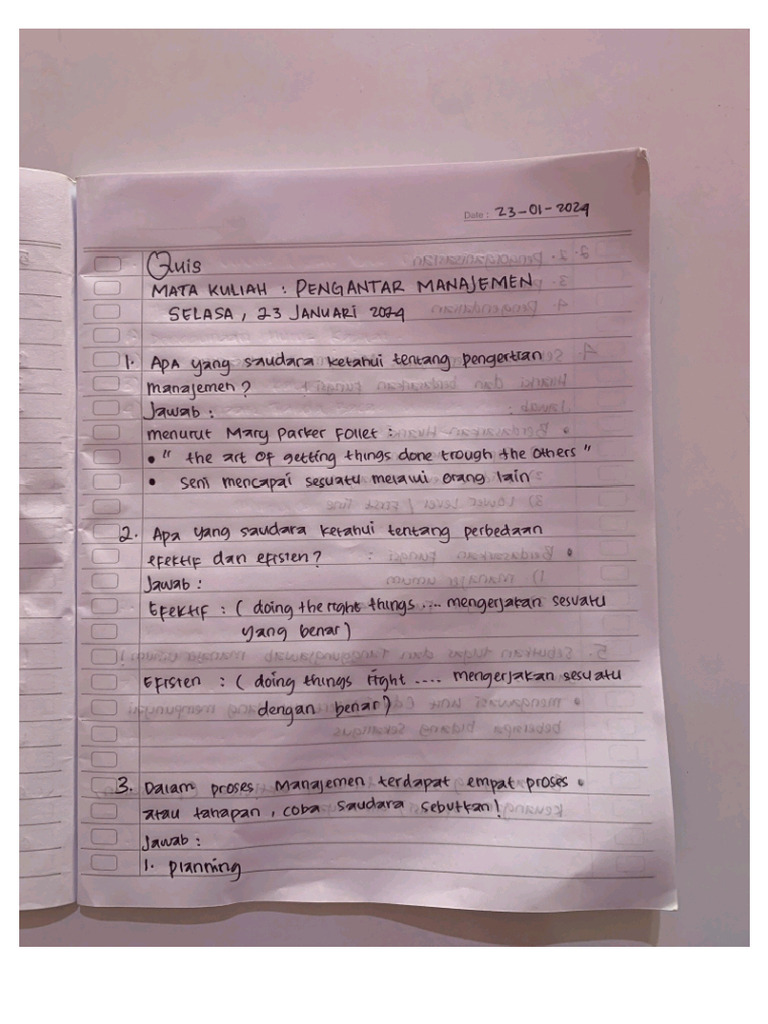 Date : 23-01-2024
Quis
MATA KULIAH : PENGANTAR MANAJEMEN
SELASA, 23 JANUARI 2024
1. Apa yang saudara ketahui tentang pengertian
manajemen?
Jawab :
menurut Mary Parker Follet :
• " the art of getting things done trough the others "
• seni mencapai sesuatu melalui orang lain
2. Apa yang saudara ketahui tentang perbedaan
efektif dan efisien?
Jawab :
Efektif : ( doing the right things .... mengerjakan sesuatu
yang benar)
Efisien : ( doing things right .... mengerjakan sesuatu
dengan benar)
3. Dalam proses Manajemen terdapat empat proses
atau tahapan, coba saudara sebutkan!
Jawab :
1. planning